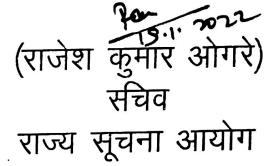 19.1.2022
(राजेश कुमार ओगरे)
सचिव
राज्य सूचना आयोग